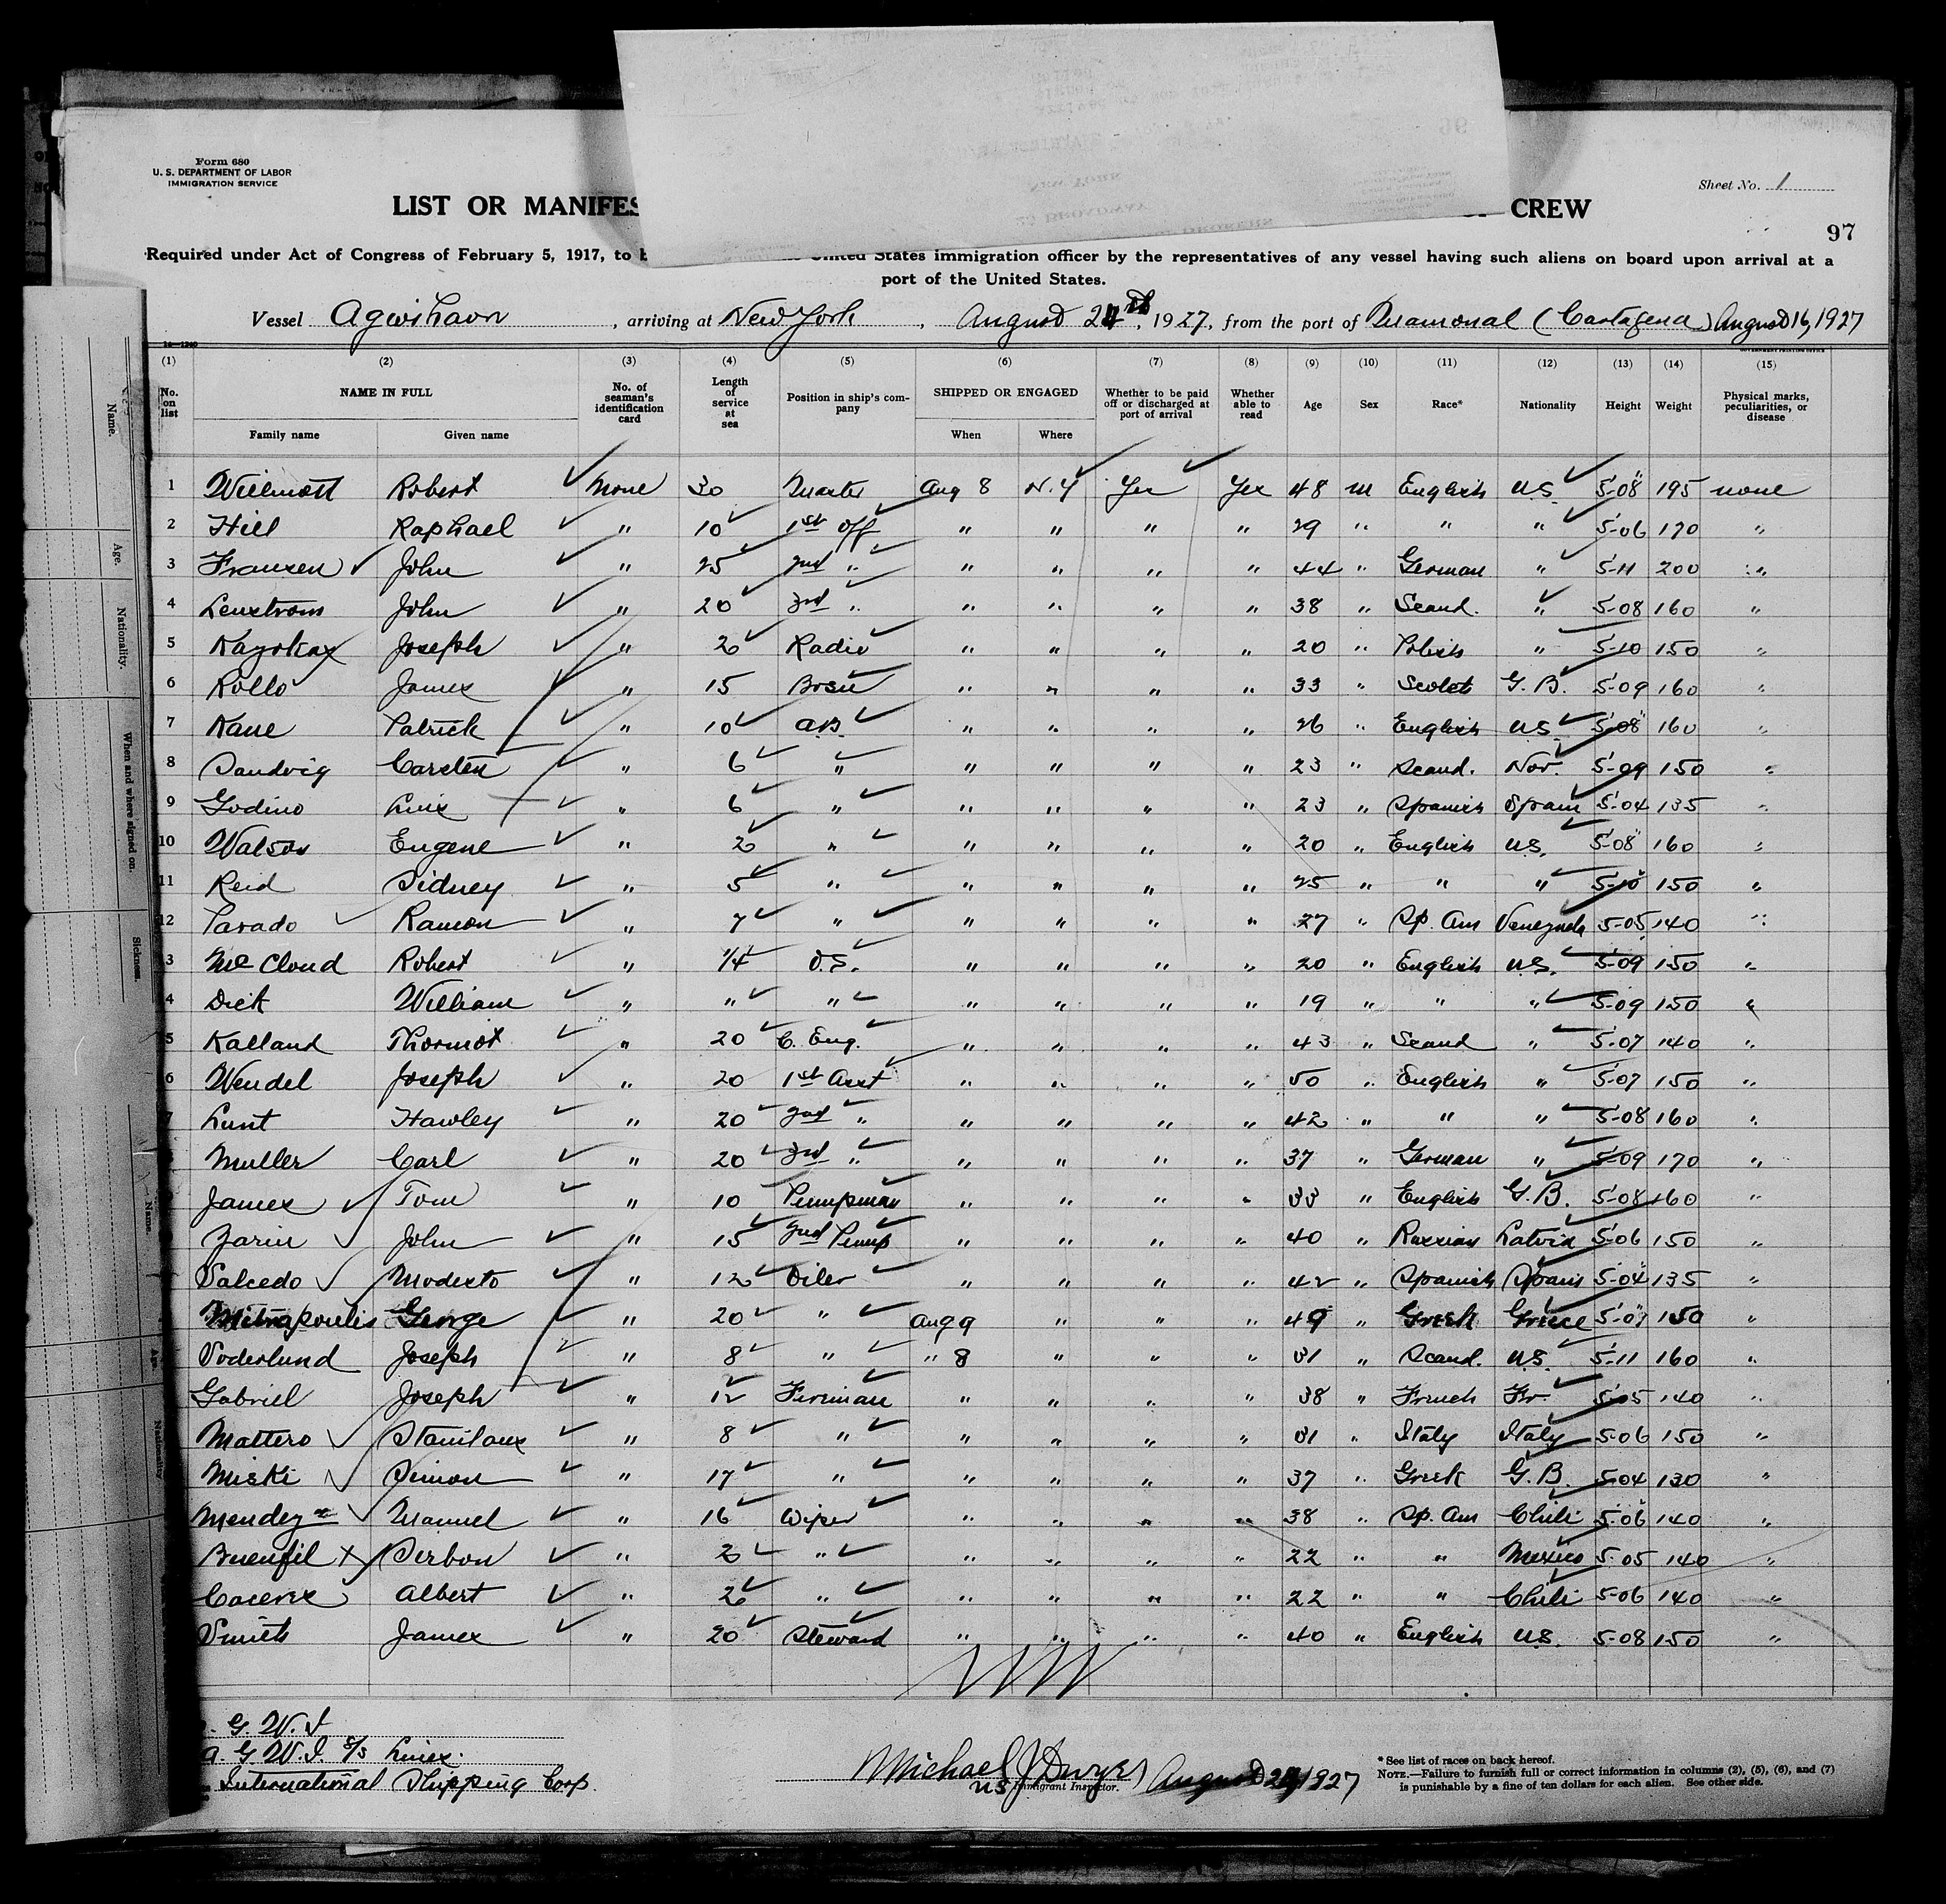 Form 680
U. S. DEPARTMENT OF LABOR
IMMIGRATION SERVICE
Sheet No. 1
LIST OR MANIFES CREW
97
Required under Act of Congress of February 5, 1917, to b United States immigration officer by the representatives of any vessel having such aliens on board upon arrival at a
port of the United States.
Vessel Agwihavn, arriving at New York, August 24th, 1927, from the port of Mamonal (Cartagena) August 16, 1927
(1) (2) (3) (4) (5) (6) (7) (8) (9) (10) (11) (12) (13) (14) (15)
No. on list NAME IN FULL No. of seaman's identification card Length of service at sea Position in ship's company SHIPPED OR ENGAGED Whether to be paid off or discharged at port of arrival Whether able to read Age Sex Race* Nationality Height Weight Physical marks, peculiarities, or disease
Family name Given name When Where
1 Willmott Robert None 30 Master Aug 8 N.Y Yes Yes 48 M English US 5'08" 195 none
2 Hill Raphael " 10 1st Off " " " " 29 " " " 5-06 170 "
3 Fransen John " 25 2nd " " " " " 44 " German " 5-11 200 "
4 Lenstrom John " 20 3rd " " " " " 38 " Scand. " 5-08 160 "
5 Joseph " 2 Radio " " " " 20 " Polish " 5-10 150 "
6 Rollo James " 15 Bosn " " " " 33 " Scotch G.B. 5-09 160 "
7 Kane Patrick " 10 A.B. " " " " 26 " English US 5-08 160 "
8 Sandvig Carsten " 6 " " " " " 23 " Scand. Nor. 5-09 150 "
9 Godino Luis " 6 " " " " " 23 " Spanish Spain 5-04 135 "
10 Watson Eugene " 2 " " " " " 20 " English US. 5-08 160 "
11 Reid Sidney " 5 " " " " " 25 " " " 5-10 150 "
12 Parado Ramon " 7 " " " " " 27 " Sp. Am Venezuela 5-05 140 "
3 McCloud Robert " 1/4 O.S. " " " " 20 " English US. 5-09 150 "
4 Dick William " " " " " " " 19 " " " 5-09 150 "
5 Kalland Thormot " 20 C. Eng. " " " " 43 " Scand " 5-07 140 "
6 Wendel Joseph " 20 1st Asst " " " " 50 " English " 5-07 150 "
7 Lunt Hawley " 20 2nd " " " " " 42 " " " 5-08 160 "
Muller Carl " 20 3rd " " " " " 37 " German " 5-09 170 "
James Tom " 10 Pumpman " " " " 33 " English G.B. 5-08 160 "
Zarin John " 15 2nd Pump " " " " 40 " Russian Latvia 5-06 150 "
Salcedo Modesto " 12 Oiler " " " " 42 " Spanish Spain 5-04 135 "
Mitrapoulis George " 20 " Aug 9 " " " 49 " Greek Greece 150 "
Soderlund Joseph " 8 " " 8 " " " 31 " Scand. US. 5-11 160 "
Gabriel Joseph " 12 Fireman " " " " 38 " French Fr. 5-05 140 "
Mattero Stanilaus " 8 " " " " " 31 " Italy Italy 5-06 150 "
Miski Simon " 17 " " " " " 37 " Greek G.B. 5-04 130 "
Mendez Manuel " 16 Wiper " " " " 38 " Sp. Am Chili 5-06 140 "
Buenfil Serbon " 2 " " " " " 22 " " Mexico 5-05 140 "
Albert " 2 " " " " " 22 " " Chili 5-06 140 "
Smith James " 20 Steward " " " " 40 " English US. 5-08 150 "
G. W. I
A. G. W. I. S/S Lines.
International Shipping Corp.
Michael J Dwyer August 24, 1927
US Immigrant Inspector.
* See list of races on back hereof.
NOTE.—Failure to furnish full or correct information in columns (2), (5), (6), and (7)
is punishable by a fine of ten dollars for each alien. See other side.
Name.
Age.
Nationality.
When and where signed on.
Sickness.
Name.
Age.
Nationality